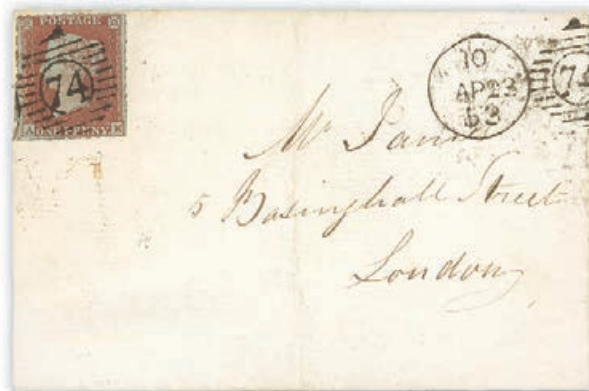 POSTAGE
74
ONE PENNY
10
AP 23
53
74
Mr
5 Basinghall Street
London